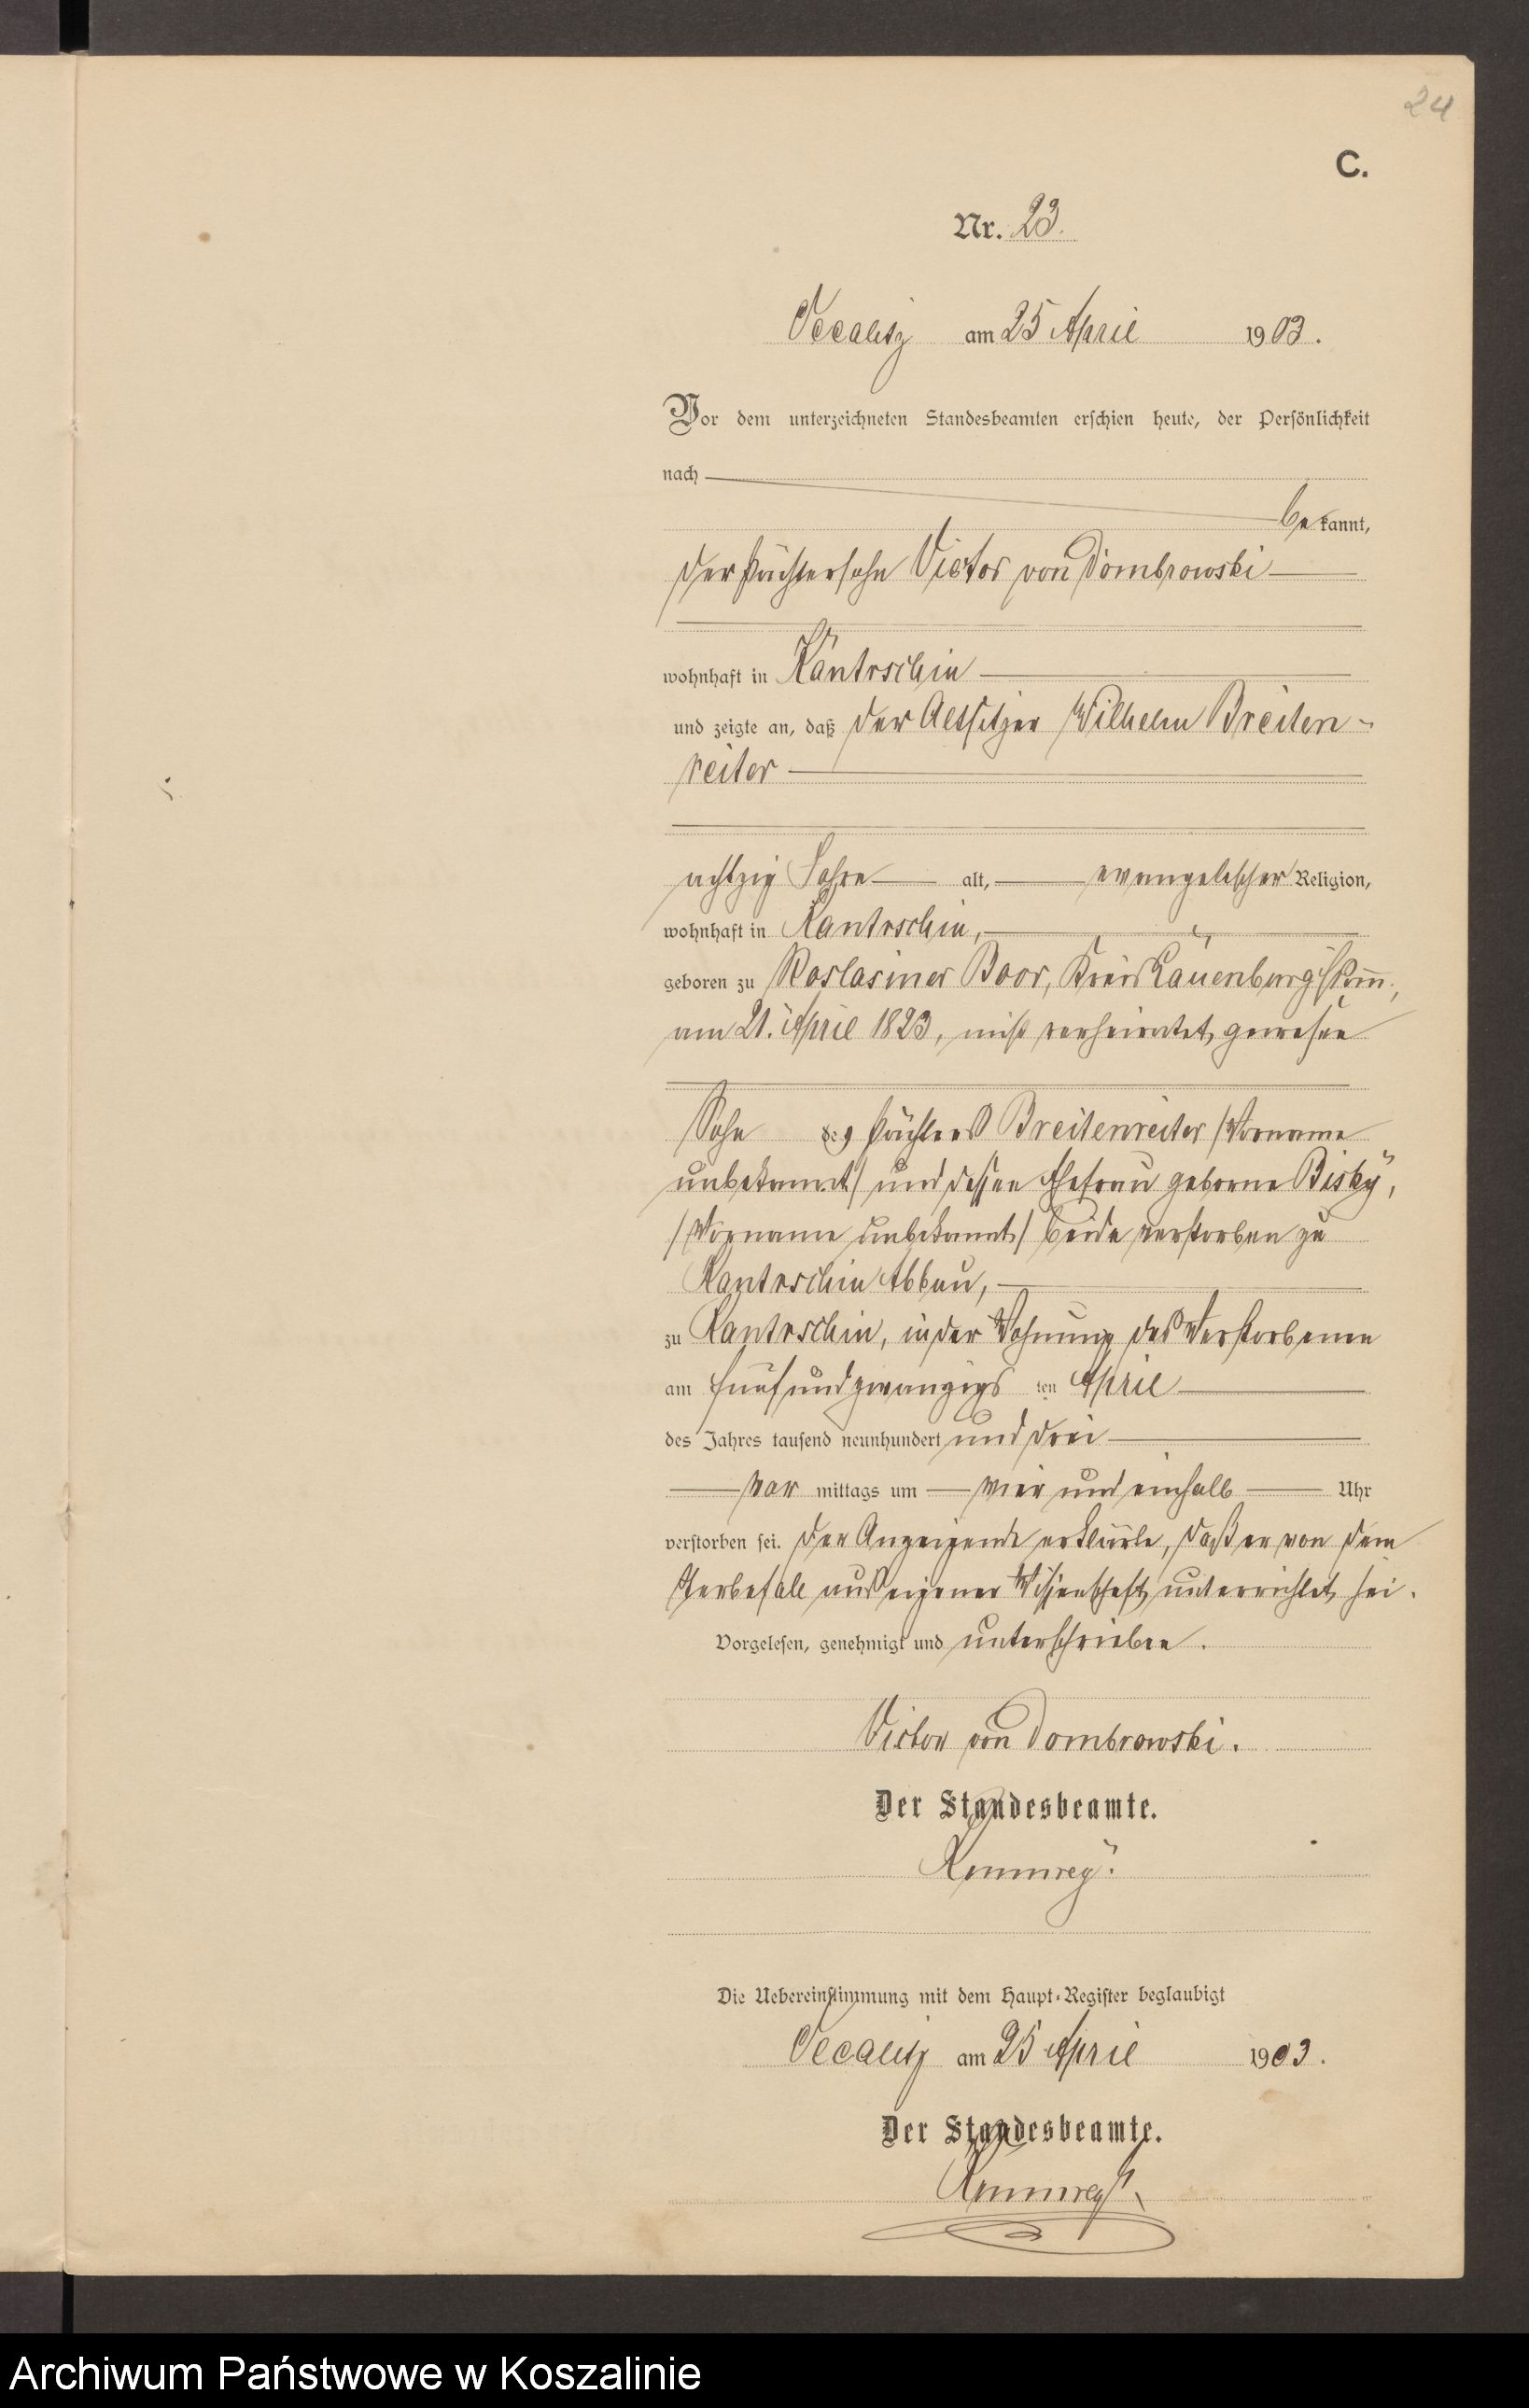 24
C.
Nr. 23.
Vecalitz am 25 April 1903.
Vor dem unterzeichneten Standesbeamten erschien heute, der Persönlichkeit
nach
bekannt,
der Pächtersohn Victor von Dombrowski
wohnhaft in Kantrschin
und zeigte an, daß der Altsitzer Wilhelm Breiten-
reiter
achtzig Jahre alt, evangelischer Religion,
wohnhaft in Kantrschin,
geboren zu Roslasiner Boor, Kreis Lauenburg i/Pom.,
am 21. April 1823, nicht verheiratet gewesen
Sohn des Pächters Breitenreiter /Vorname
unbekannt/ und dessen Ehefrau geborne Bisky,
/Vorname unbekannt/ beide verstorben zu
Kantrschin Abbau,
zu Kantrschin, in der Wohnung des Verstorbenen
am fünfundzwanzigsten April
des Jahres tausend neunhundert und drei
vor mittags um vier und einhalb Uhr
verstorben sei. Der Anzeigende erklärte, daß er von dem
Sterbefall aus eigener Wissenschaft unterrichtet sei.
Vorgelesen, genehmigt und unterschrieben.
Victor von Dombrowski.
Der Standesbeamte.
Die Uebereinstimmung mit dem Haupt-Register beglaubigt
Vecalitz am 25 April 1903.
Der Standesbeamte.
Archiwum Państwowe w Koszalinie